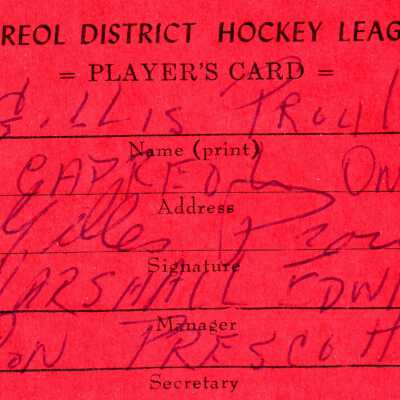 REOL DISTRICT HOCKEY LEAG
= PLAYER'S CARD =
GILLIS PROUL
Name (print)
CAPREOL ON
Address
Gilles Prou
Signature
MARSHALL EDW
Manager
RON PRESCOTT
Secretary